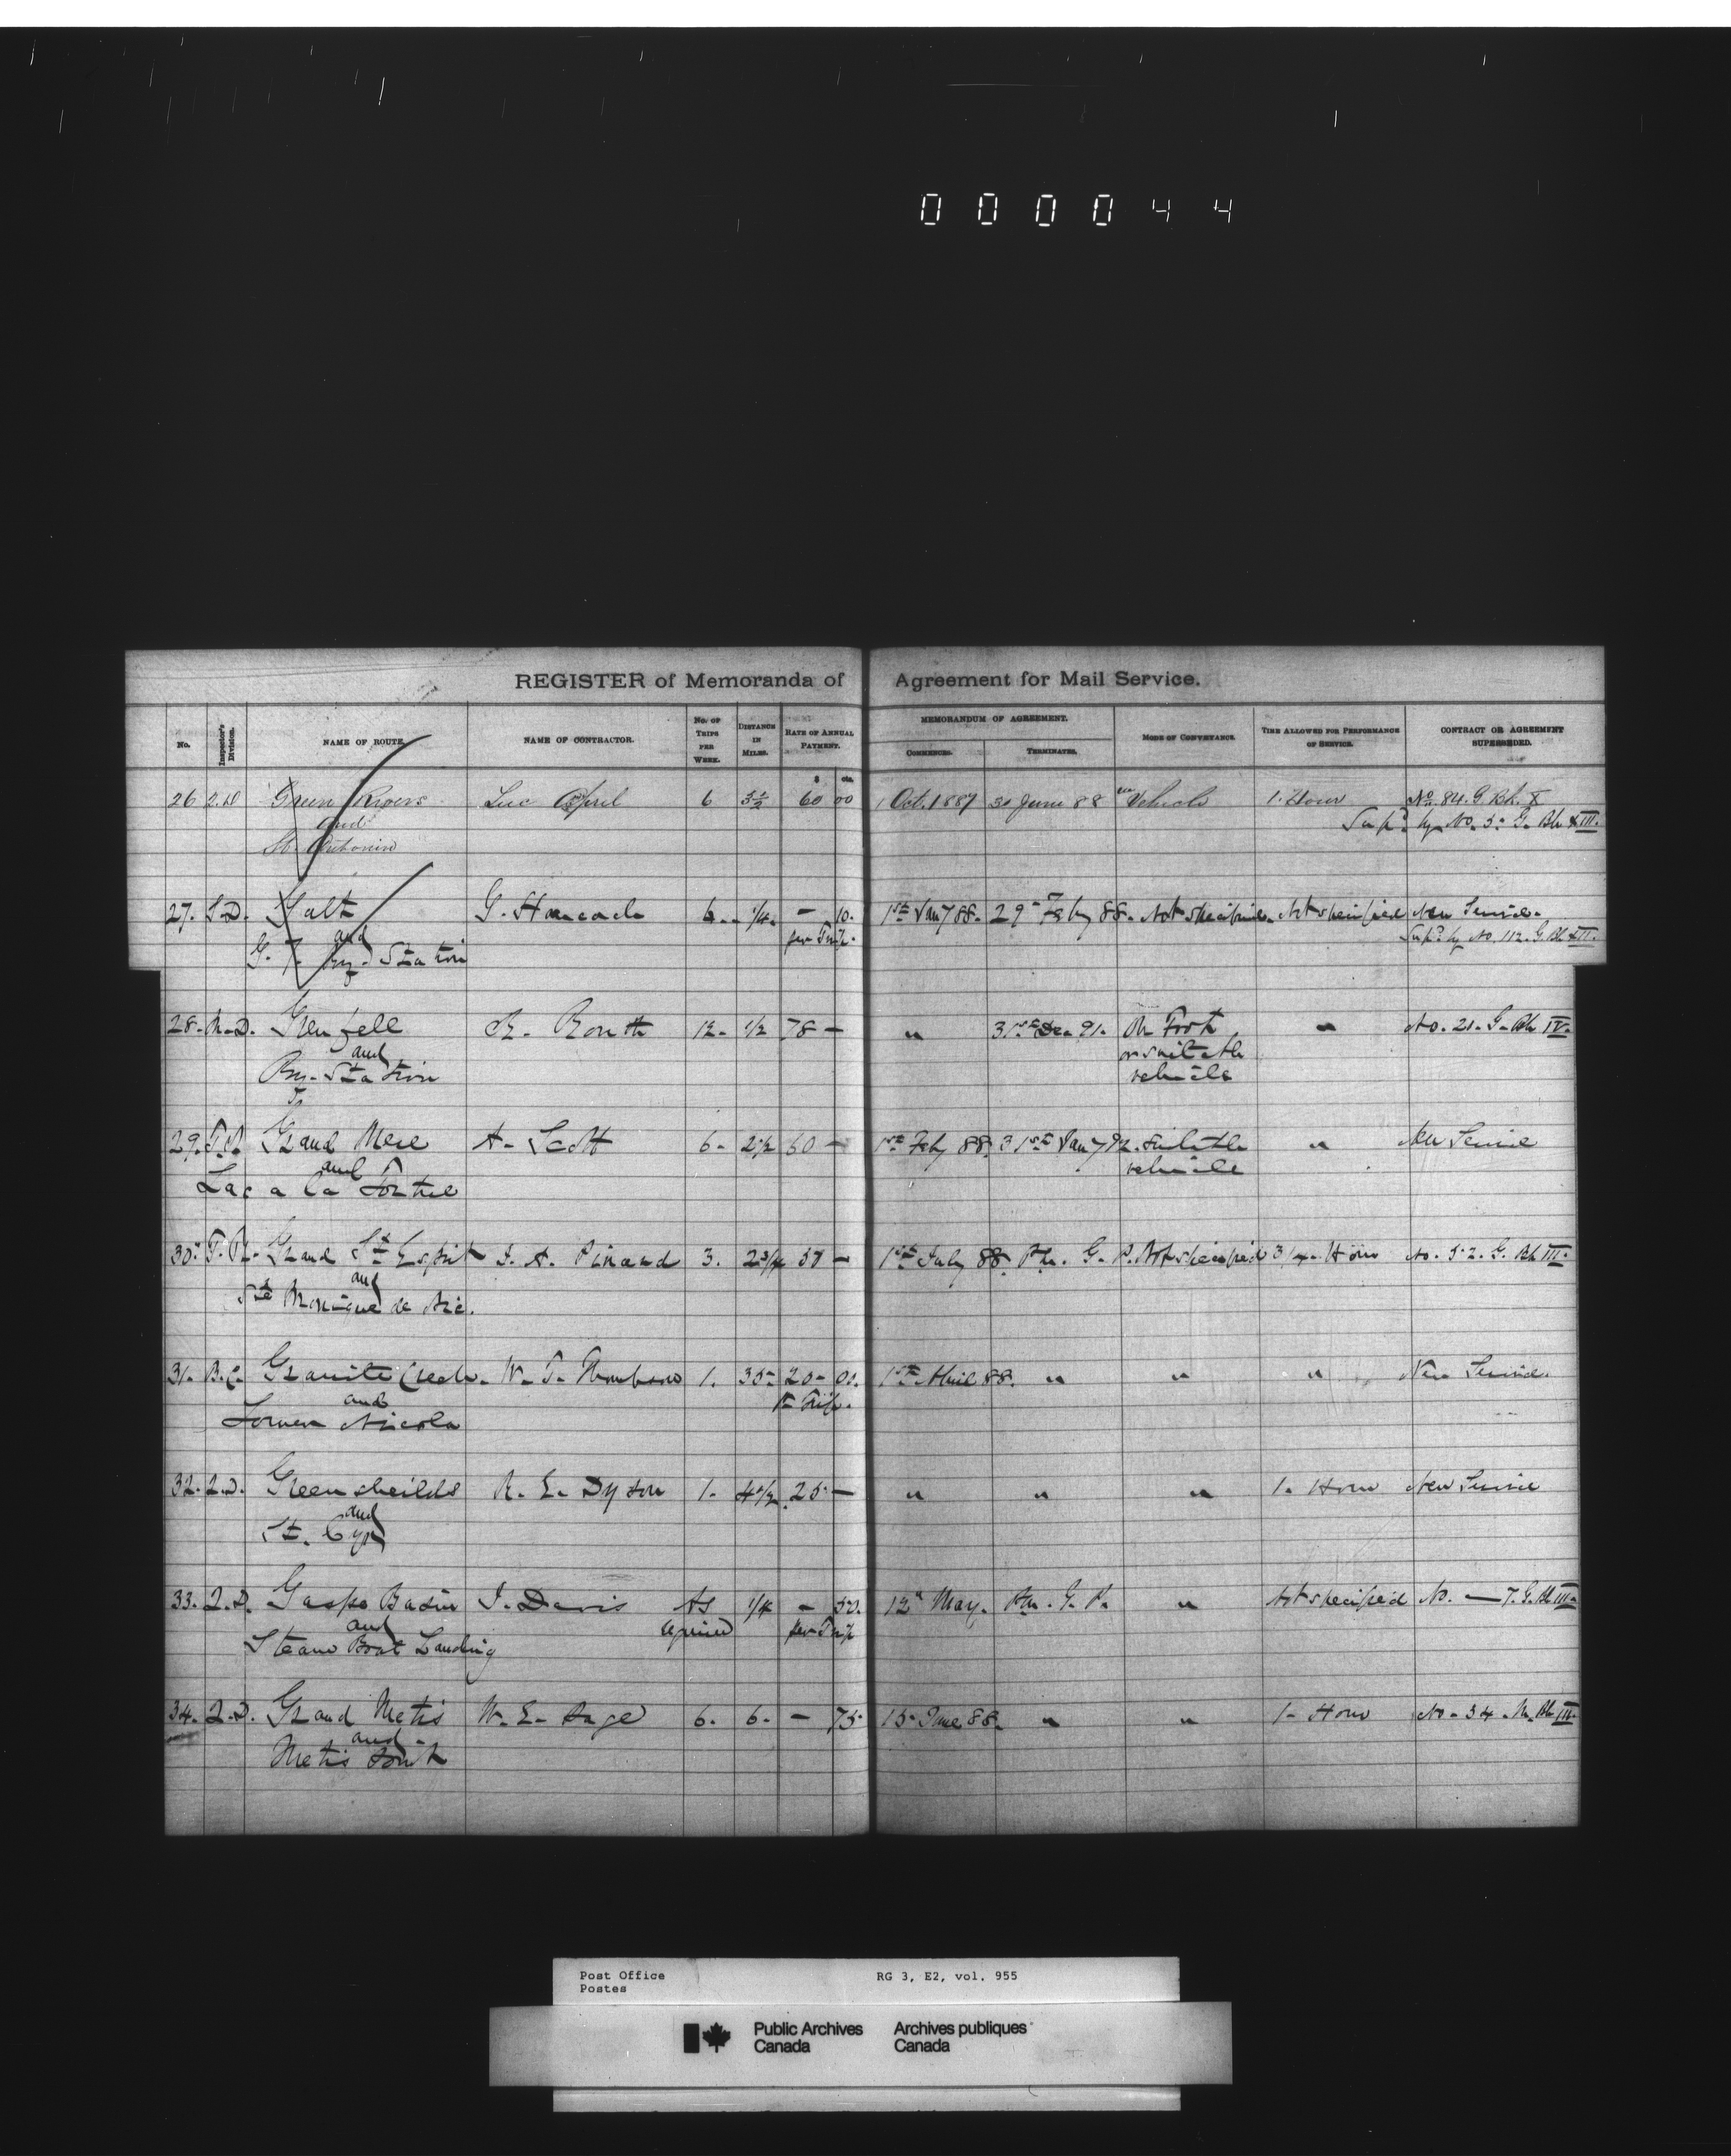 000044
REGISTER of Memoranda of Agreement for Mail Service.
No. Inspector's Division. NAME OF ROUTE. NAME OF CONTRACTOR. No. of Trips per Week. Distance in Miles. Rate of Annual Payment. MEMORANDUM OF AGREEMENT. Commences. Terminates. Mode of Conveyance. Time Allowed for Performance of Service. CONTRACT OR AGREEMENT SUPERSEDED.
$ cts.
26 Q.D Green Rivers Luc April 6 5½ 60 00 1 Oct. 1887 30 June 88 Vehicle 1. Hour No. 84. G Bk. X
and Sup'd by No. 5. G. Bk XIII.
St. Antonin
27. S.D. Galt G. Hancock 6. 1/4. — 10. 1st Jany 88. 29" Feby 88. Not specified. Not specified New Service.
and per Trip. Sup'd by No. 112. G Bk XII.
G. T. Ry. Station
28. M.D. Grenfell R. Routh 12. 1/2 78 — " 31st Dec. 91. On Foot " No. 21. G. Bk IV.
and or suitable
Ry. Station vehicle
29. T.R. Grand Mere A. Scott 6. 2½ 60 — 1st Feby 88. 31st Jany 92. Suitable " New Service
and vehicle
Lac a la Tortue
30. T.R. Grand St Esprit J. A. Pinard 3. 2 3/4 38 — 1st July 88. Pl. G. P. Not specified 3/4 Hour No. 52. G. Bk III.
and
Ste Monique de Nic.
31. B.C. Granite Creek. W. T. Thompson 1. 35 20 00. 1st April 88. " " " New Service.
and Trip.
Lower Nicola
32. Q.D. Greenshields R. E. Dyson 1. 4½ 25 — " " " 1. Hour New Service
and
St. Cyr
33. Q.D. Gaspe Basin J. Davis As 1/4 — 50. 12" May. Pl. G. P. " Not specified No. — 7. G. Bk III.
and required per Trip
Steam Boat Landing
34. Q.D. Grand Metis W. E. Page 6. 6. — 75. 15 June 88. " " 1 Hour No. 34. M. Bk III.
and
Metis South
Post Office RG 3, E2, vol. 955
Postes
Public Archives Archives publiques
Canada Canada